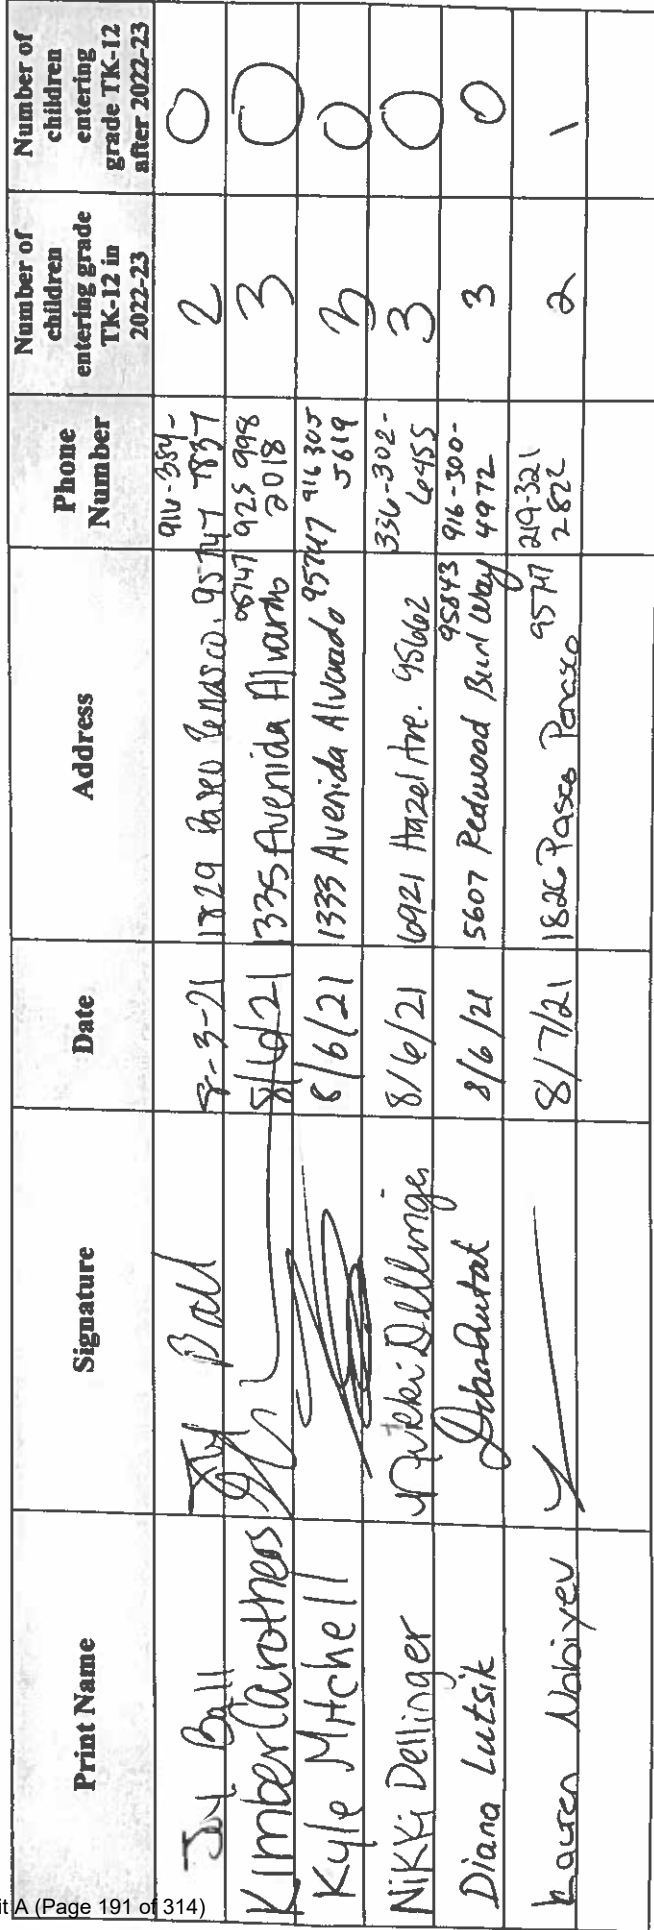 Print Name
Signature
Date
Address
Phone
Number
Number of
children
entering grade
TK-12 in
2022-23
Number of
children
entering
grade TK-12
after 2022-23
Ball
Ball
8-3-21
1829 Paseo Penasco. 95747
916-384-
7837
2
0
Kimber Carothers
8/6/21
1335 Avenida Alvarado
95747
925 998
2018
3
0
Kyle Mitchell
8/6/21
1333 Avenida Alvarado 95747
916 305
5619
3
0
Nikki Dellinger
Nikki Dellinger
8/6/21
6921 Hazel Ave. 95662
336-302-
6455
3
0
Diana Lutsik
8/6/21
5607 Redwood Burl Way
95843
916-300-
4972
3
0
Lauren Nabiyev
8/7/21
1826 Paseo Penasco
95747
219-321
2822
2
1
it A (Page 191 of 314)